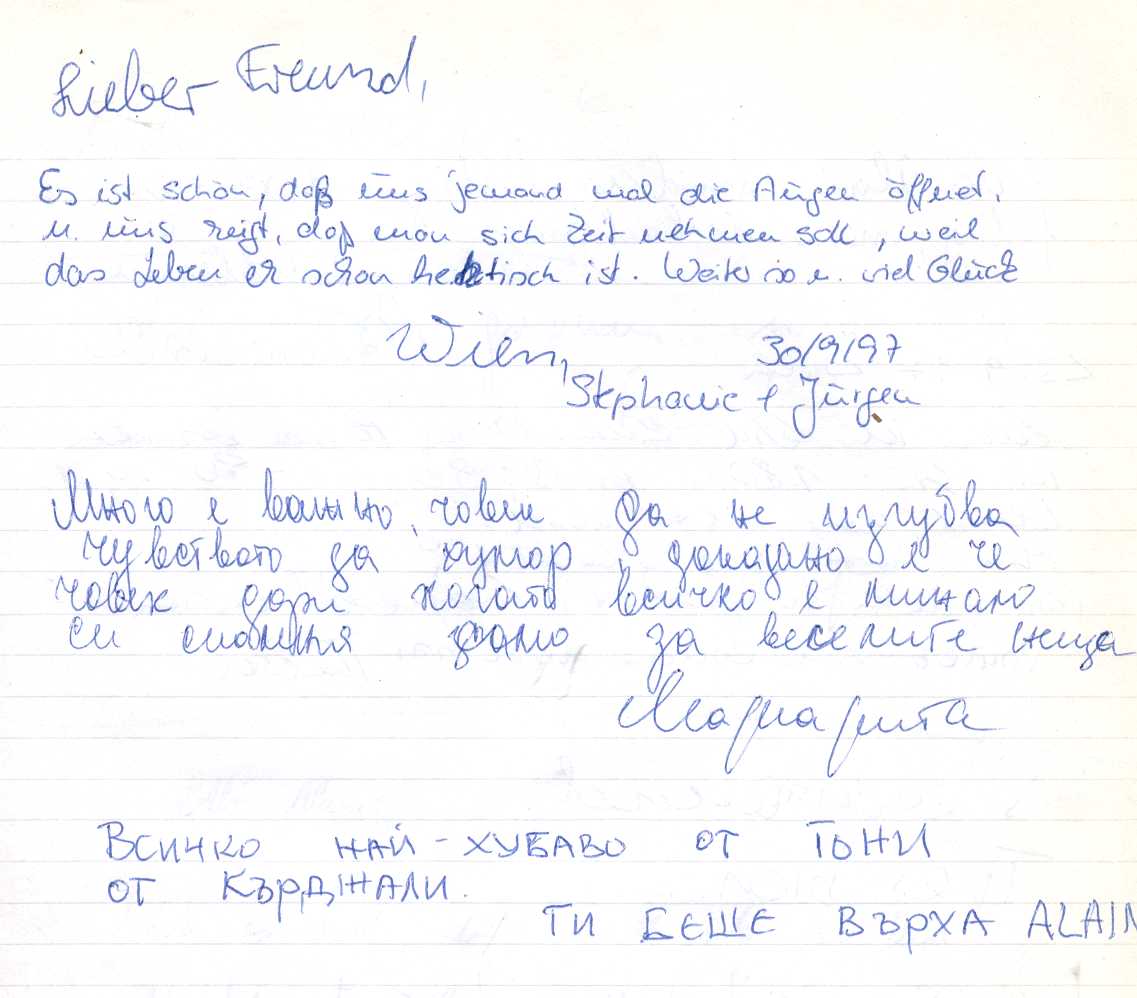 Lieber Freund,
Es ist schön, daß uns jemand mal die Augen öffnet,
u. uns zeigt, daß man sich Zeit nehmen soll, weil
das Leben eh schon hektisch ist. Weiter so u. viel Glück
Wien, 30/9/97
Stephanie + Jürgen
Много е важно, човек да не изгубва
чувството да хумор, доказано е че
човек дори когато всичко е минало
си спомня само за веселите неща
Маргарита
Всичко най-хубаво от Тони
от Кърджали.
Ти беше върха ALAIN